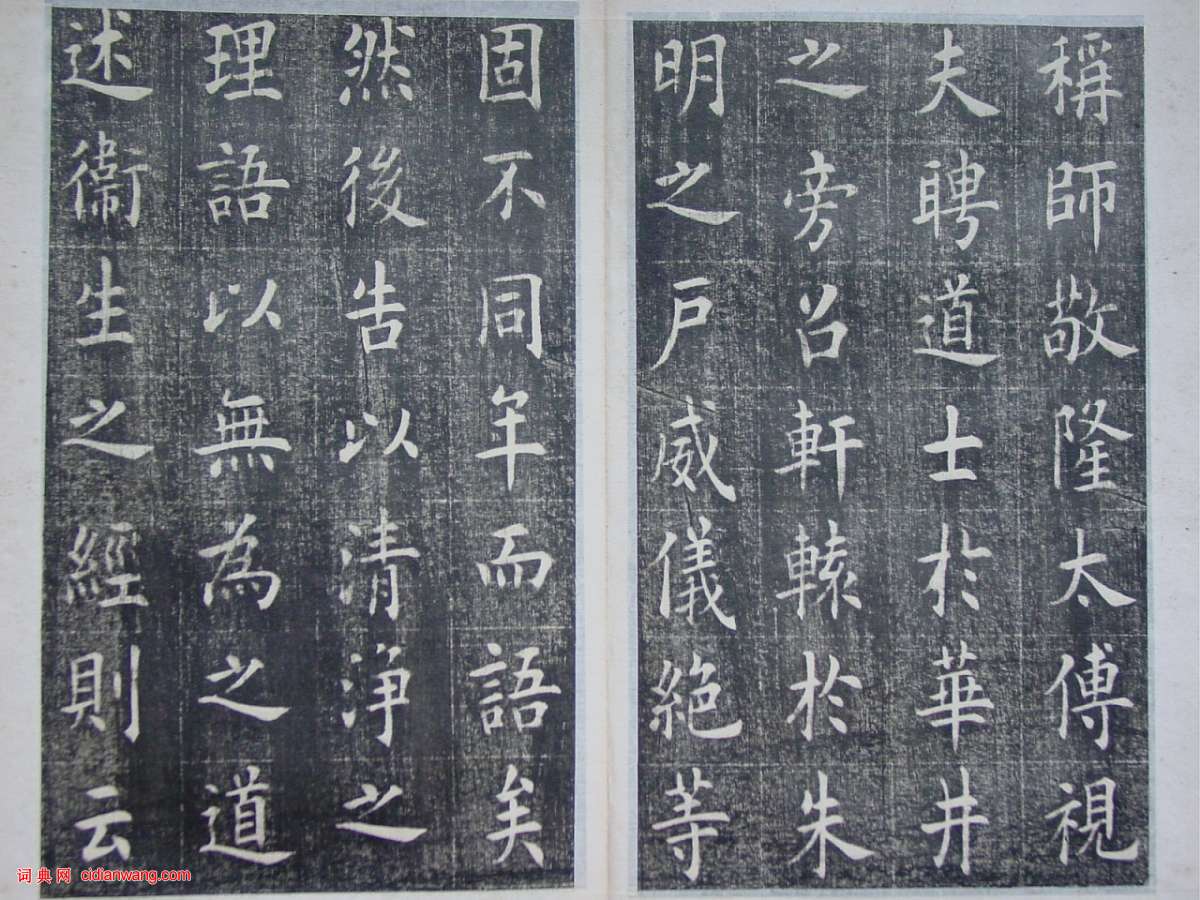 稱師敬隆太傅視
夫聘道士於華井
之旁召軒轅於朱
明之戶威儀絶等
固不同年而語矣
然後告以清淨之
理語以無為之道
述衞生之經則云
词典网 cidianwang.com